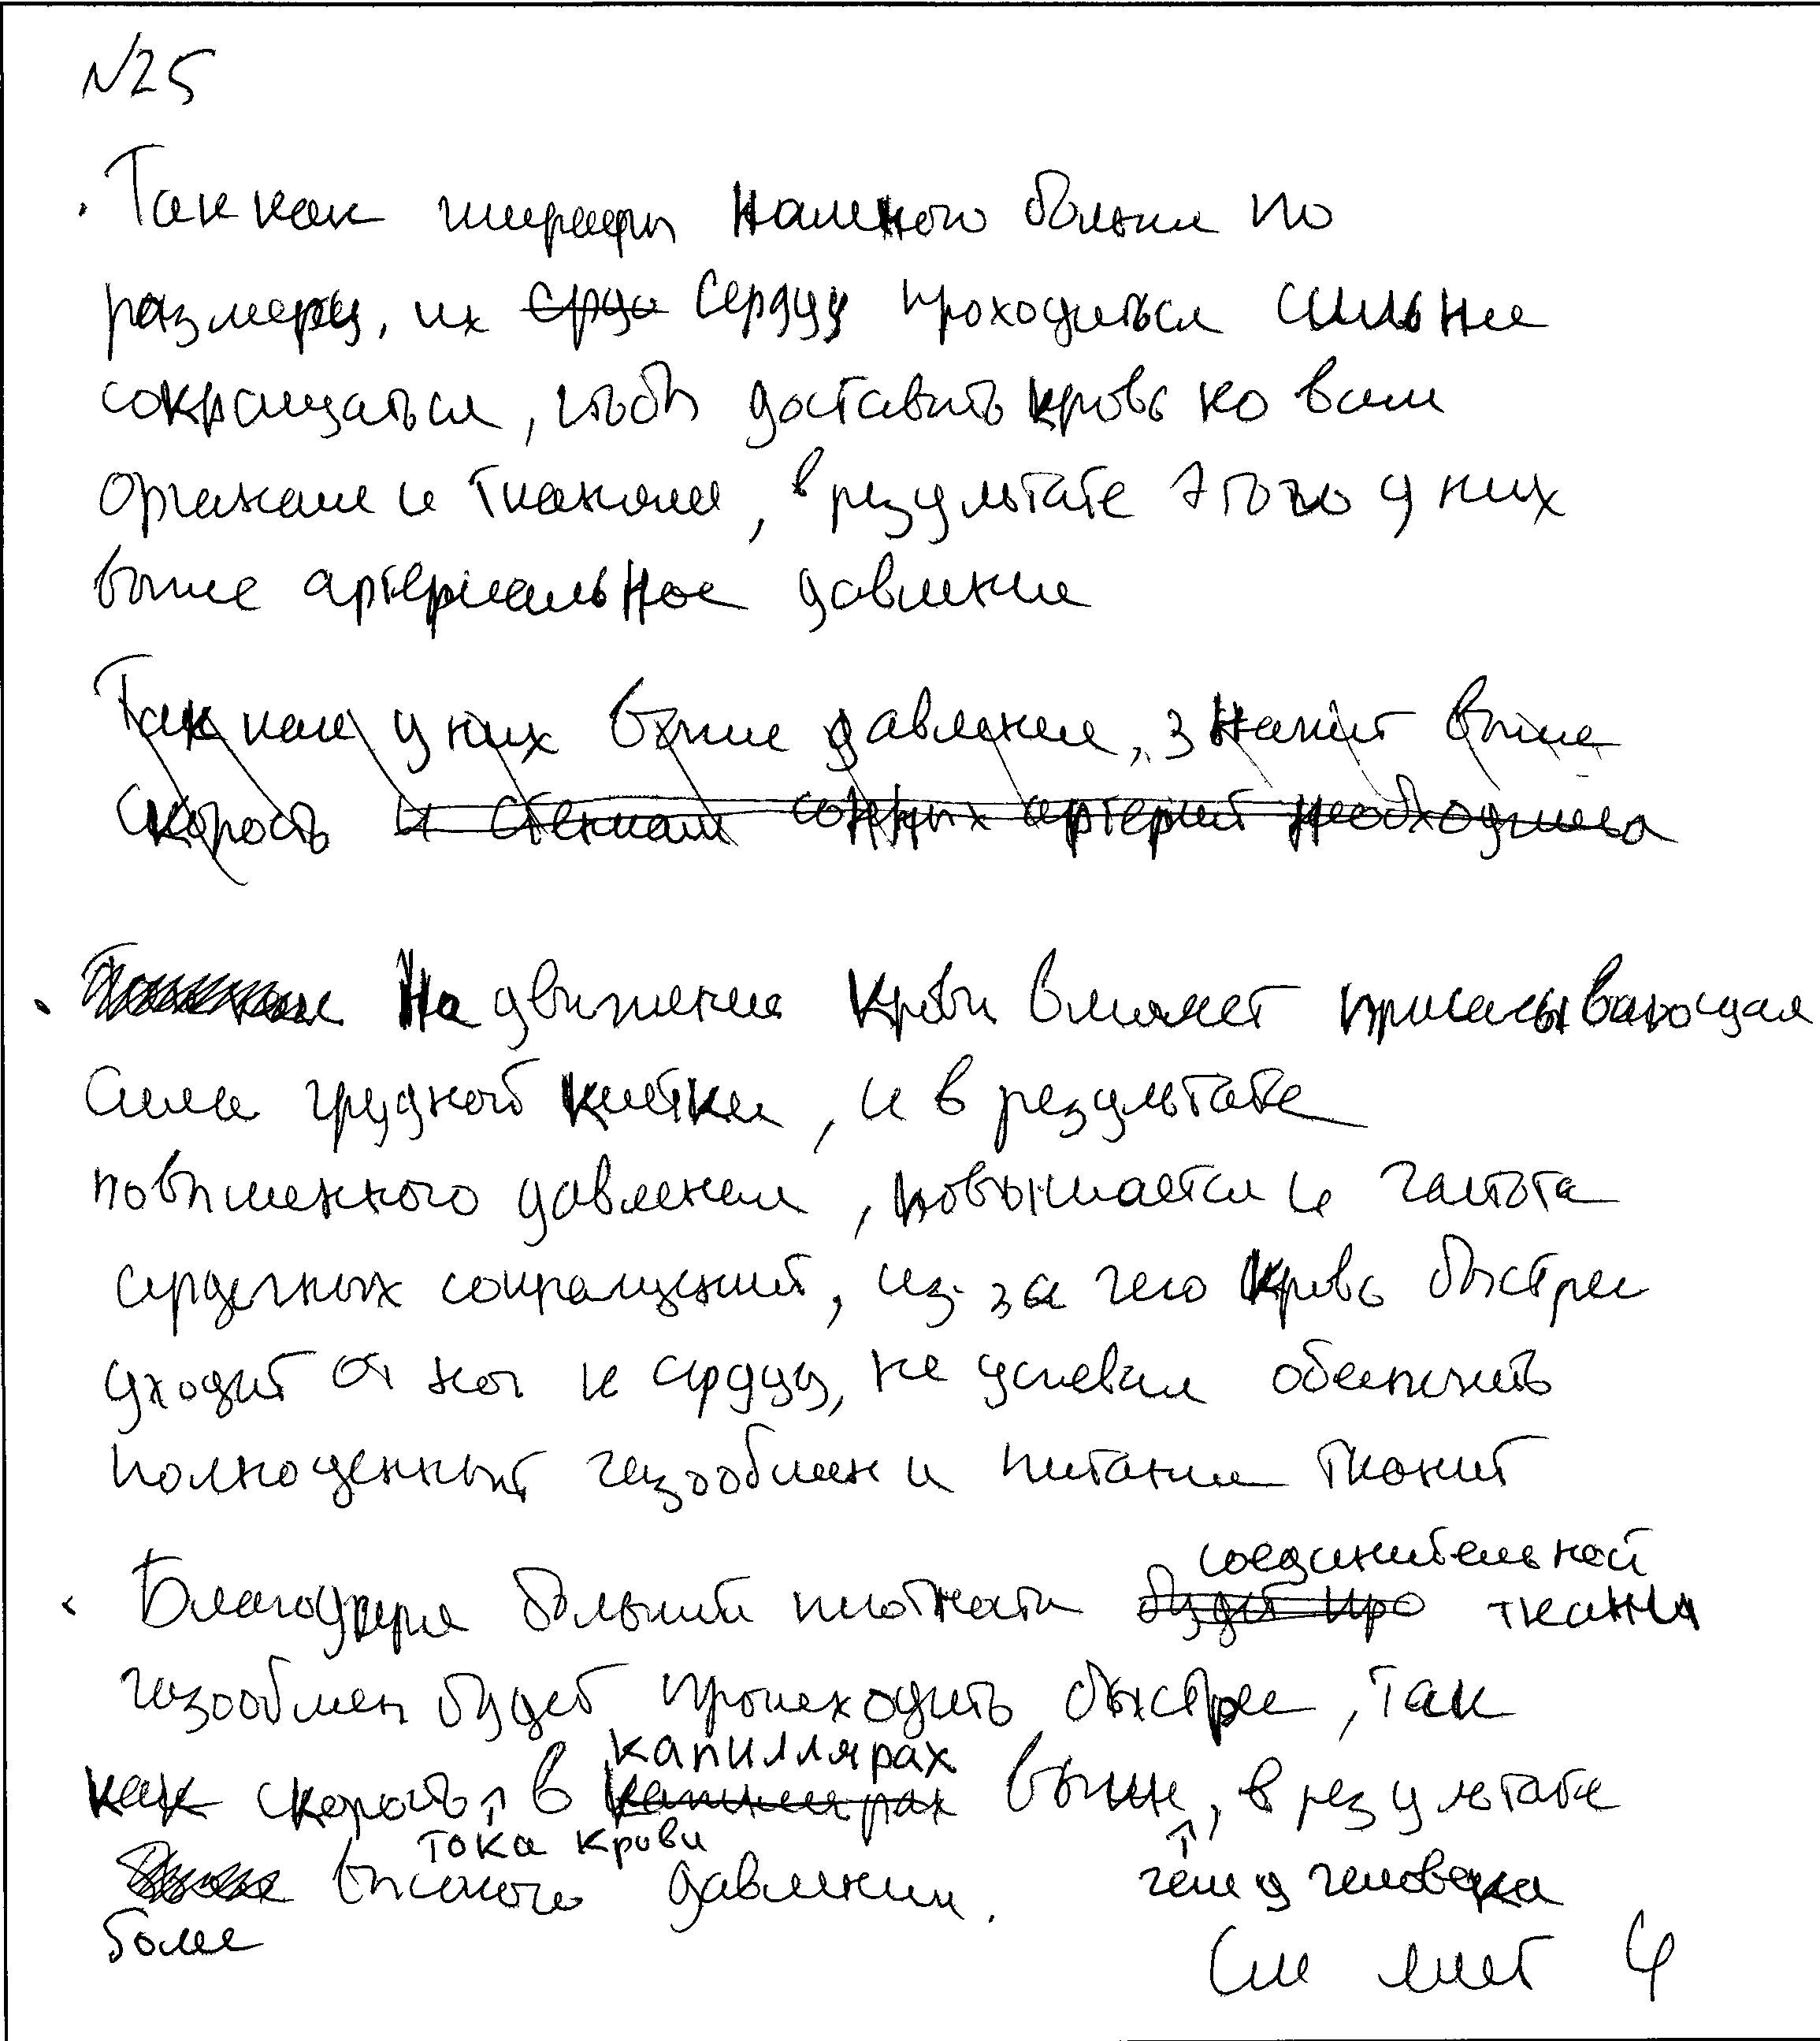 №25
. Так как жирафы намного больше по
размеру, их срдц сердцу проходиться сильнее
сокращаться, чтобы доставить кровь ко всем
органам и тканям, в результате этого у них
выше артериальное давление
Так как у них выше давление, значит выше
скорость и стенкам сонных артерий необходимо
. На движение крови влияет присасывающая
сила грудной клетки, и в результате
повышенного давления, повышается и частота
сердечных сокращений, из-за чего кровь быстрее
уходит от ног к сердцу, не успевая обеспечить
полноценный газообмен и питание тканей
соединительной
. Благодаря большей плотности будет про ткани
газообмен будет происходить быстрее, так
капиллярах
как скорость в капиллярах выше, в результате
тока крови
высокого давления. чем у человека
более
См лист 4